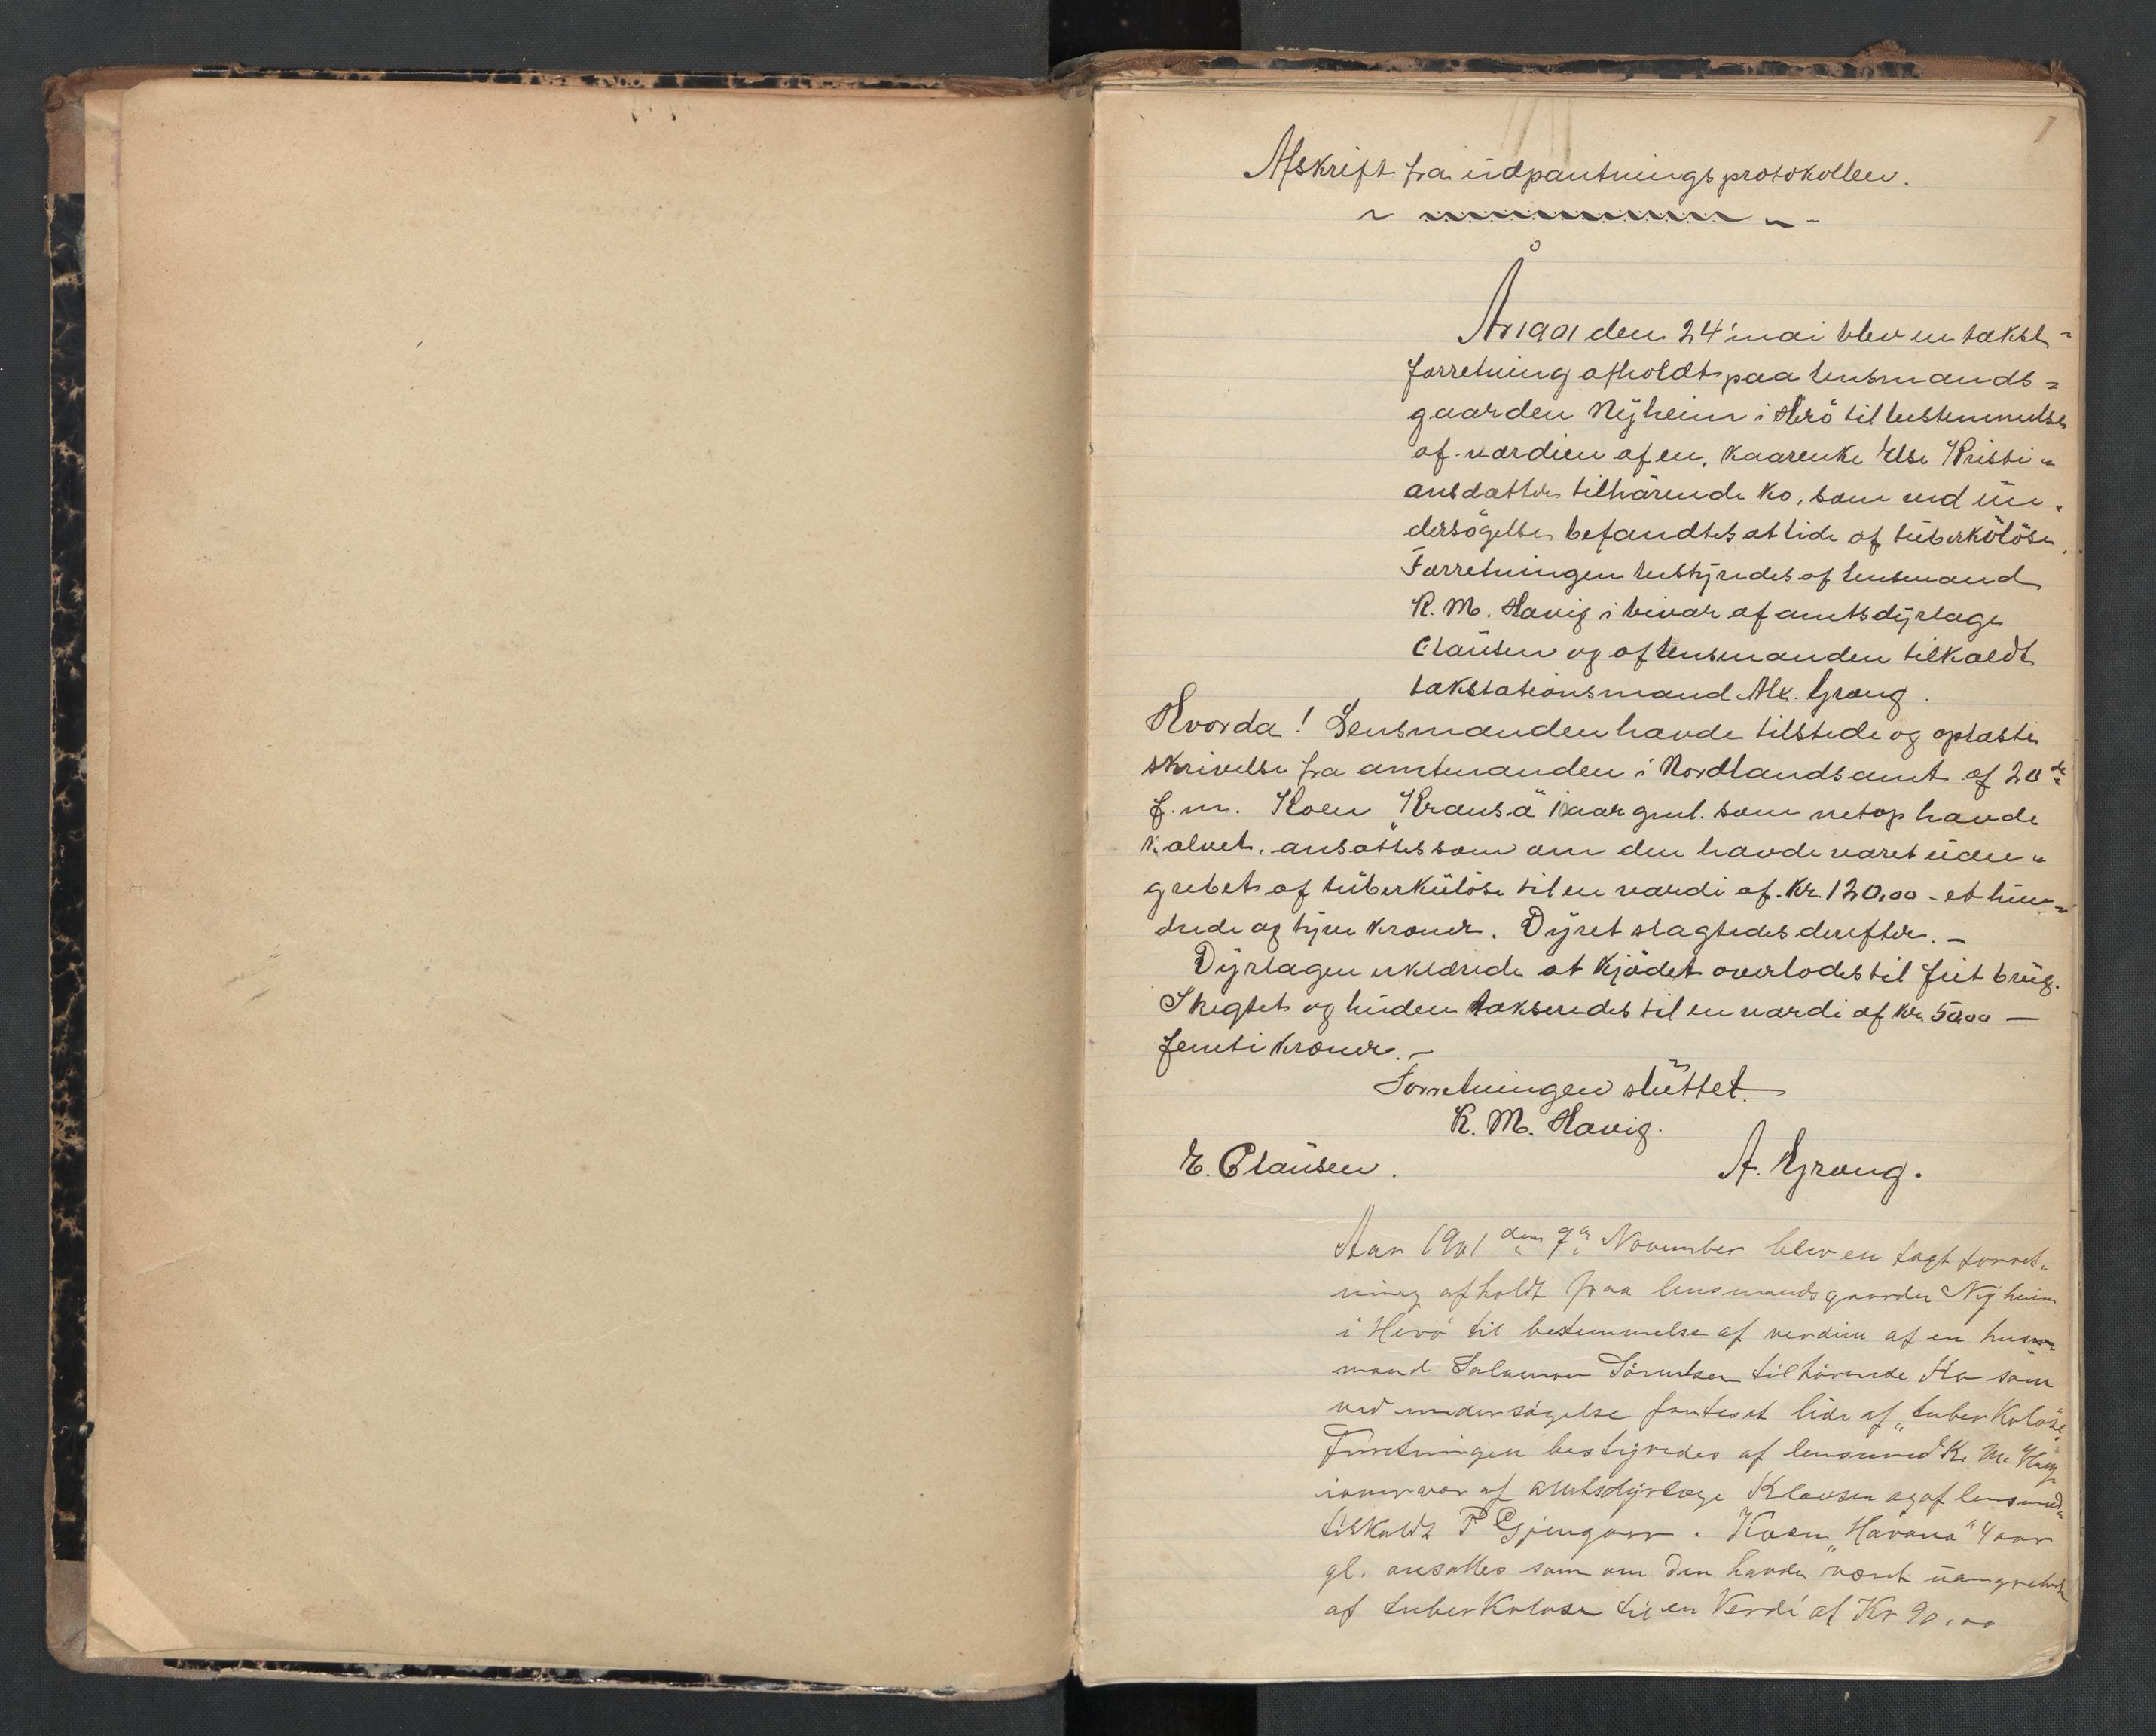 1
Afskrift fra udpantningsprotokollen.
År 1901 den 24' mai blev en takst-
forretning afholdt paa lensmands-
gaarden Nyheim i Herö til bestemmelse
af værdien af en, kaarenke Else Kristi-
ansdatter tilhörende ko, som ved un-
dersögelse befandtes at lide af tuberkölöse.
Forretningen bestyredes af lensmand
K. M. Havig i bivær af amtsdyrlæge
Clausen og af lensmanden tilkaldt
takstationsmand Alx. Grong.
Hvorda! Lensmanden havde tilstede og oplæste
skrivelse fra amtmanden i Nordlands amt af 20de
f. m. Koen "Kransa" aar gml. som netop havde
kalvet, ansattes som om den havde været uan-
grebet af tuberkülöse til en værdi af Kr. 120,00 - et hun-
drede og tyve kroner. Dyret slagtedes derefter. -
Dyrlægen erklærede at kjödet overlodes til frit brug.
Slagtet og huden takseredes til en værdi af Kr. 50,00 —
femti kroner. -
Forretningen sluttet.
K. M. Havig.
E. Clausen. A. Grong.
Aar 1901 den 7de November blev en tagt forret-
ning afholdt paa lensmandsgaarden Nyheim
i Herö til bestemmelse af verdien af en hus-
mand Salamon Sörentsen tilhörende Ko som
ved undersögelse fantes at lide af "tuberkolöse"
Forretningen bestyredes af lensmand K. M. Havig
i overvær af amtsdyrlæge Klausen og af lensmand
tilkaldt P Gjengaar. Koen "Havana" 4 aar
gl. ansattes som om den havde været uangrebet
af tuberkolose til en Verdi af Kr 90,00